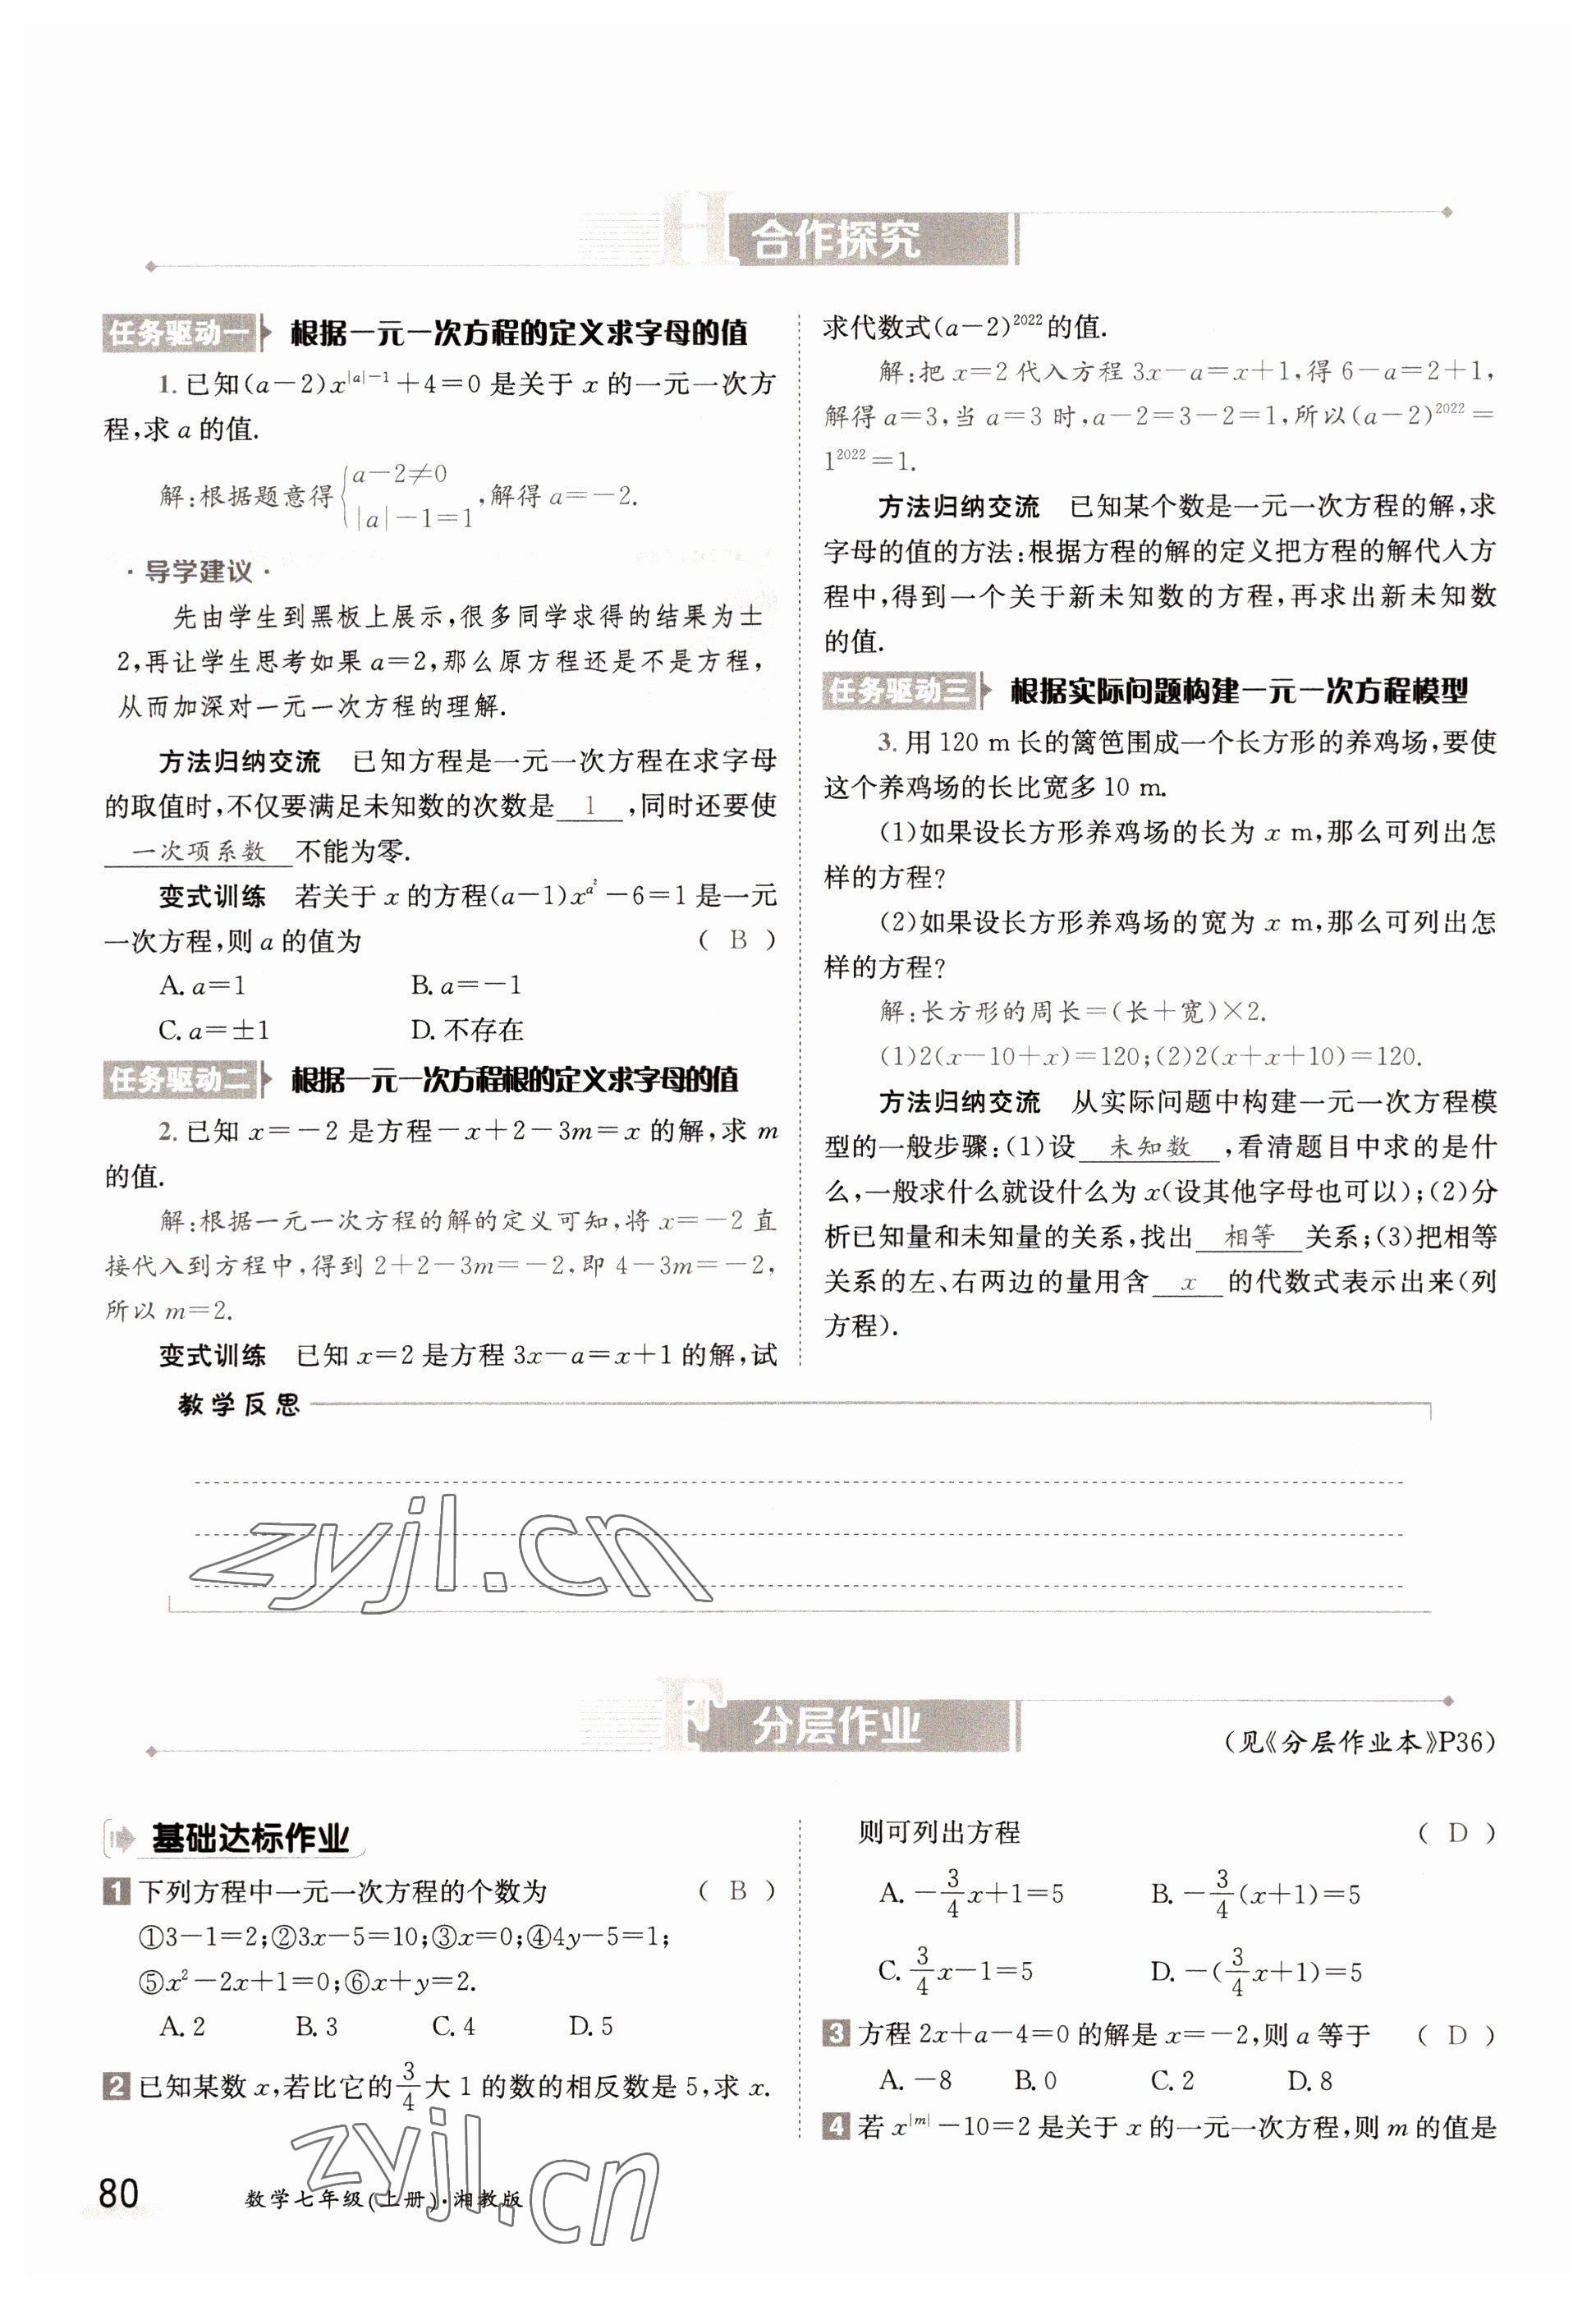 合作探究
任务驱动一 根据一元一次方程的定义求字母的值
1. 已知(a-2)x^{|a|-1}+4=0 是关于 x 的一元一次方
程,求 a 的值.
解:根据题意得{a-2≠0
|a|-1=1,解得 a=-2.
·导学建议·
先由学生到黑板上展示,很多同学求得的结果为±
2,再让学生思考如果 a=2,那么原方程还是不是方程,
从而加深对一元一次方程的理解.
方法归纳交流 已知方程是一元一次方程在求字母
的取值时,不仅要满足未知数的次数是 1 ,同时还要使
一次项系数 不能为零.
变式训练 若关于 x 的方程(a-1)x^{a²}-6=1 是一元
一次方程,则 a 的值为 ( B )
A. a=1 B. a=-1
C. a=±1 D. 不存在
任务驱动二 根据一元一次方程根的定义求字母的值
2. 已知 x=-2 是方程-x+2-3m=x 的解,求 m
的值.
解:根据一元一次方程的解的定义可知,将 x=-2 直
接代入到方程中,得到 2+2-3m=-2,即 4-3m=-2,
所以 m=2.
变式训练 已知 x=2 是方程 3x-a=x+1 的解,试
求代数式(a-2)²⁰²²的值.
解:把 x=2 代入方程 3x-a=x+1,得 6-a=2+1,
解得 a=3,当 a=3 时,a-2=3-2=1,所以(a-2)²⁰²²=
1²⁰²²=1.
方法归纳交流 已知某个数是一元一次方程的解,求
字母的值的方法:根据方程的解的定义把方程的解代入方
程中,得到一个关于新未知数的方程,再求出新未知数
的值.
任务驱动三 根据实际问题构建一元一次方程模型
3. 用 120 m 长的篱笆围成一个长方形的养鸡场,要使
这个养鸡场的长比宽多 10 m.
(1)如果设长方形养鸡场的长为 x m,那么可列出怎
样的方程?
(2)如果设长方形养鸡场的宽为 x m,那么可列出怎
样的方程?
解:长方形的周长=(长+宽)×2.
(1)2(x-10+x)=120;(2)2(x+x+10)=120.
方法归纳交流 从实际问题中构建一元一次方程模
型的一般步骤:(1)设 未知数 ,看清题目中求的是什
么,一般求什么就设什么为 x(设其他字母也可以);(2)分
析已知量和未知量的关系,找出 相等 关系;(3)把相等
关系的左、右两边的量用含 x 的代数式表示出来(列
方程).
教学反思
zyjl.cn
分层作业
(见《分层作业本》P36)
基础达标作业
1 下列方程中一元一次方程的个数为 ( B )
①3-1=2;②3x-5=10;③x=0;④4y-5=1;
⑤x²-2x+1=0;⑥x+y=2.
A. 2 B. 3 C. 4 D. 5
2 已知某数 x,若比它的3/4大 1 的数的相反数是 5,求 x.
则可列出方程 ( D )
A. -3/4x+1=5 B. -3/4(x+1)=5
C. 3/4x-1=5 D. -(3/4x+1)=5
3 方程 2x+a-4=0 的解是 x=-2,则 a 等于 ( D )
A. -8 B. 0 C. 2 D. 8
4 若 x^{|m|}-10=2 是关于 x 的一元一次方程,则 m 的值是
zyjl.cn
80 数学七年级(上册)·湘教版